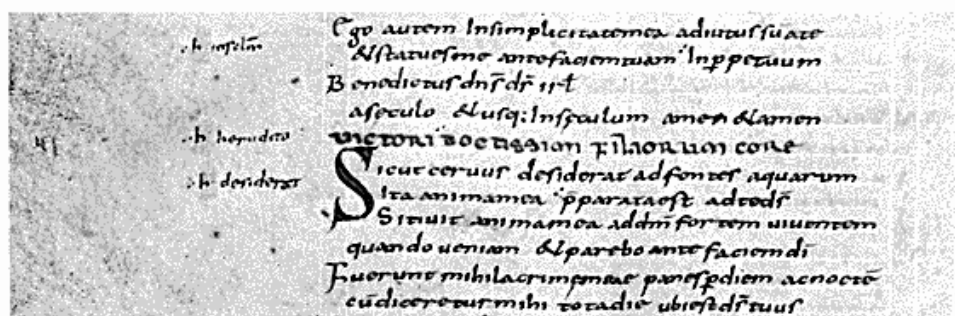 Ego autem Insimplicitatemea adiutussūate
·h inselm̄
&statuesme antefaciemtuam Inp̄petuum
Benedictus dn̄s ds̄ isrl
aseculo &usq: Insęculum amen &amen
VICTORI DOCTISSIOM FILIORUM CORE
·h herudito
Sicut ceruus desiderat adfontes aquarum
·h desiderat
Ita animamea p̄parataest adteds̄
Sitiuit animamea addm̄ fortem uiuentem
quando ueniam &parebo ante faciemdi
Fuerunt mihilacrimemeae panesp̄diem acnoctē
cūdiceretur mihi totadie ubiestds̄tuus